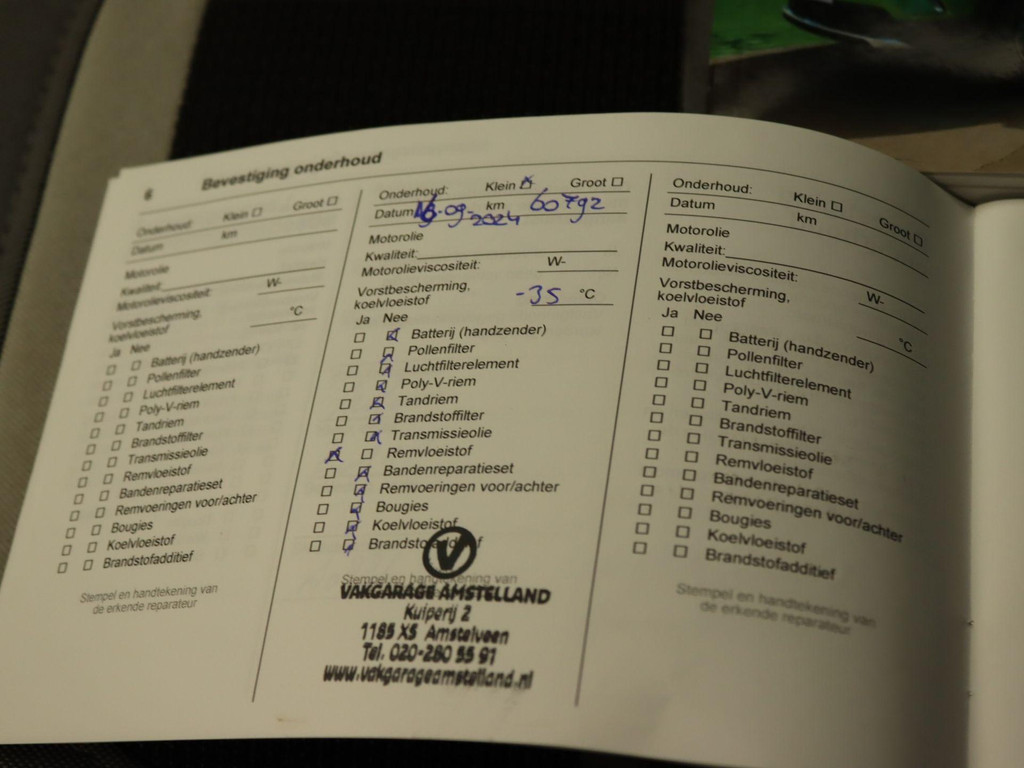 6 Bevestiging onderhoud
Onderhoud: Klein ☐ Groot ☐
Datum km
Motorolie
Kwaliteit:
Motorolieviscositeit: W-
Vorstbescherming,
koelvloeistof °C
Ja Nee
☐ ☐ Batterij (handzender)
☐ ☐ Pollenfilter
☐ ☐ Luchtfilterelement
☐ ☐ Poly-V-riem
☐ ☐ Tandriem
☐ ☐ Brandstoffilter
☐ ☐ Transmissieolie
☐ ☐ Remvloeistof
☐ ☐ Bandenreparatieset
☐ ☐ Remvoeringen voor/achter
☐ ☐ Bougies
☐ ☐ Koelvloeistof
☐ ☐ Brandstofadditief
Stempel en handtekening van
de erkende reparateur
Onderhoud: Klein ☒ Groot ☐
Datum -09-2024 km 60792
Motorolie
Kwaliteit:
Motorolieviscositeit: W-
Vorstbescherming,
koelvloeistof -35 °C
Ja Nee
☐ ☒ Batterij (handzender)
☐ ☒ Pollenfilter
☐ ☒ Luchtfilterelement
☐ ☒ Poly-V-riem
☐ ☒ Tandriem
☐ ☒ Brandstoffilter
☐ ☒ Transmissieolie
☒ ☐ Remvloeistof
☐ ☒ Bandenreparatieset
☐ ☒ Remvoeringen voor/achter
☐ ☒ Bougies
☐ ☒ Koelvloeistof
☐ ☒ Brandstofadditief
Stempel en handtekening van
VAKGARAGE AMSTELLAND
Kuiperij 2
1185 XS Amstelveen
Tel. 020-280 55 91
www.vakgarageamstelland.nl
Onderhoud: Klein ☐ Groot ☐
Datum km
Motorolie
Kwaliteit:
Motorolieviscositeit: W-
Vorstbescherming,
koelvloeistof °C
Ja Nee
☐ ☐ Batterij (handzender)
☐ ☐ Pollenfilter
☐ ☐ Luchtfilterelement
☐ ☐ Poly-V-riem
☐ ☐ Tandriem
☐ ☐ Brandstoffilter
☐ ☐ Transmissieolie
☐ ☐ Remvloeistof
☐ ☐ Bandenreparatieset
☐ ☐ Remvoeringen voor/achter
☐ ☐ Bougies
☐ ☐ Koelvloeistof
☐ ☐ Brandstofadditief
Stempel en handtekening van
de erkende reparateur